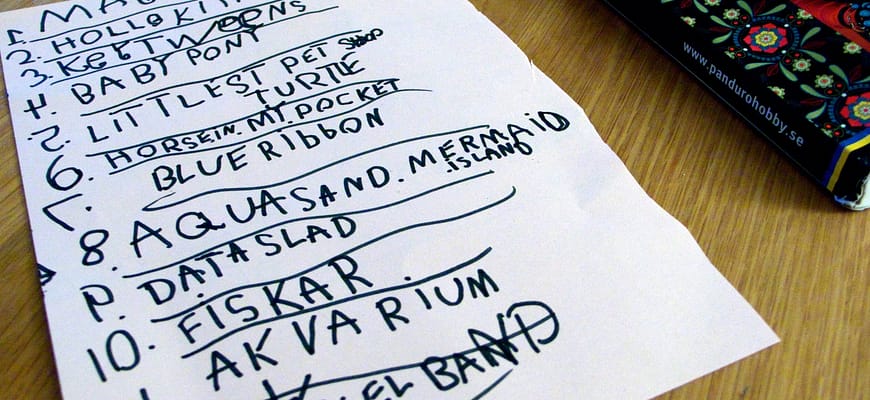 1. MA
2. HOLLOKI
3. KettWeeNS
4. BABY PONY
5. LITTLEST PET SHOP
TURTLE
6. HORSEIN.MY.POCKET
7. BLUE RIBBON
8. AQUASAND.MERMAID
.ISLAND
9. DATASLAD
10. FISKAR.
AKVARIUM
ELBAND
www.pandurohobby.se